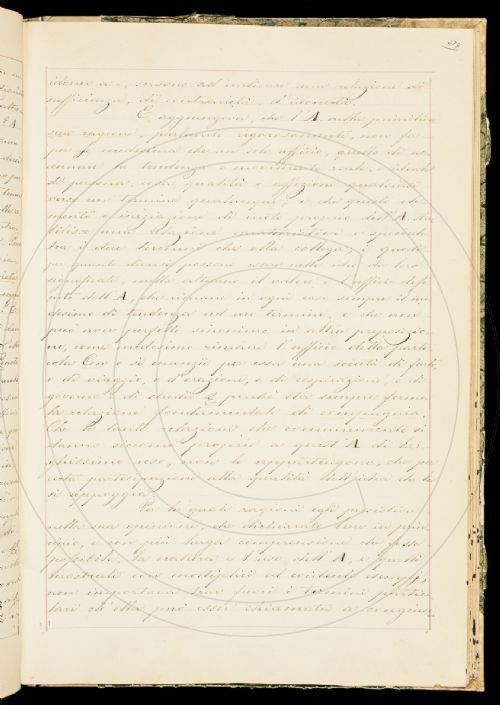 idonei a , servono ad indicare una relazione di
sufficienza, di contrarietà, d'idoneità.
E aggiungeva, che l'A nella primitiva
sua ragione, parlando rigorosamente, non fa
per se medesima che un solo ufficio, quello di ac-
cennare la tendenza o movimento reale o ideale
di persona, cosa, qualità o affezione qualsivoglia
verso un termine qualunque; e che questo ele-
mento e iniziazione di moto proprio dell'A sta-
bilisce una relazione caratteristica e speciale
tra i due termini che ella collega, i quali
per quanto diversi possano essere nella idea da loro
significata, nulla alterano il valore e l'ufficio defi-
nito dell'A, che rimane in ogni caso sempre il me-
desimo di tendenza ad un termine, e che non
può aver perfetto sinonimo in altra preposizio-
ne, come medesimo rimane l'ufficio della parti-
cola Con o si enunzii per essa una società di fatto,
o di viaggio, o d'orazione, o di cospirazione, o di
governo o di studio. E perchè sta sempre ferma
la relazione fondamentale di compagnia.
Che le tante relazioni che comunemente si
danno siccome proprie a quest'A di lar-
ghissimo uso, non le appartengono, che per
certa partecipazione alla qualità dell'idea che le
si appoggia.
Per le quali ragioni egli persisteva
nella sua opinione, che dichiarata bene in prin-
cipio, e con più larga comprensione che fosse
possibile, la natura e l'uso dell'A, e quelli
mostrati con molteplici ed evidenti esempi,
non importava trar fuori i termini partico-
lari ch'ella può esser chiamata a congiun-